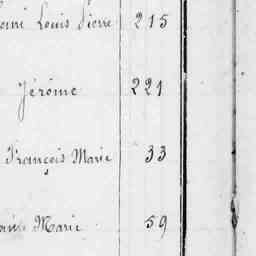 Louis Pierre 215
Jérôme 221
François Marie 33
Marie 59